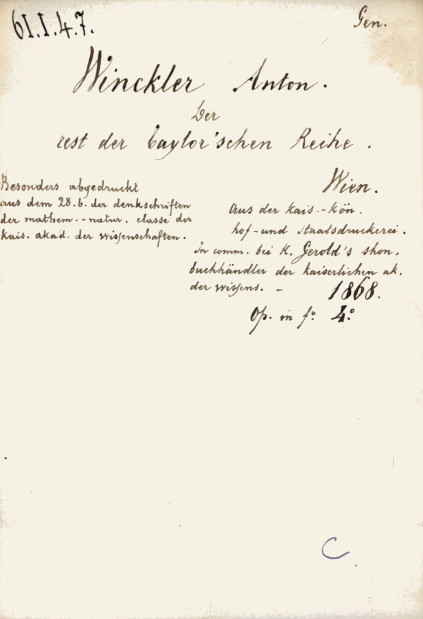 61.1.4.7.
Gen.
Winckler Anton.
Der
rest der Taylor'schen Reihe.
Besonders abgedruckt
aus dem 28.b. der denkschriften
der mathem.-natur. classe der
kais. akad. der wissenschaften.
Wien.
aus der kais.-kön.
hof-und staatsdruckerei.
In comm. bei K. Gerold's shon.
buchhändler der kaiserlichen ak.
der wissens. - 1868.
Op. in fº. 4º
C